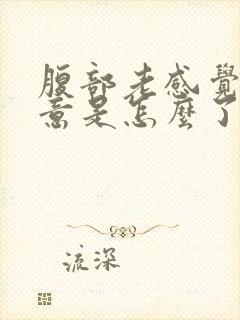 腹部老感覺
意是怎麼了
流深